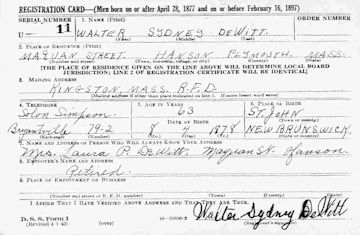 REGISTRATION CARD—(Men born on or after April 28, 1877 and on or before February 16, 1897)
SERIAL NUMBER 1. NAME (Print) ORDER NUMBER
U— 11 WALTER SYDNEY DEWITT
(First) (Middle) (Last)
2. PLACE OF RESIDENCE (Print)
MAQUAN STREET. HANSON PLYMOUTH MASS.
(Number and street) (Town, township, village, or city) (County) (State)
[THE PLACE OF RESIDENCE GIVEN ON THE LINE ABOVE WILL DETERMINE LOCAL BOARD
JURISDICTION; LINE 2 OF REGISTRATION CERTIFICATE WILL BE IDENTICAL]
3. MAILING ADDRESS
KINGSTON, MASS. R.F.D.
[Mailing address if other than place indicated on line 2. If same insert word same]
4. TELEPHONE 5. AGE IN YEARS 6. PLACE OF BIRTH
Solon Simpson 63 ST. JOHN
DATE OF BIRTH (Town or county)
Bryantville 79-2 8 7 1878 NEW BRUNSWICK.
(Exchange) (Number) (Mo.) (Day) (Yr.) (State or country)
7. NAME AND ADDRESS OF PERSON WHO WILL ALWAYS KNOW YOUR ADDRESS
Mrs. Laura P. DeWitt. Maquan St. Hanson
8. EMPLOYER'S NAME AND ADDRESS
Retired
9. PLACE OF EMPLOYMENT OR BUSINESS
(Number and street or R. F. D. number) (Town) (County) (State)
I AFFIRM THAT I HAVE VERIFIED ABOVE ANSWERS AND THAT THEY ARE TRUE.
D. S. S. Form 1
(Revised 4-1-42) (over) Walter Sydney DeWitt
(Registrant's signature)